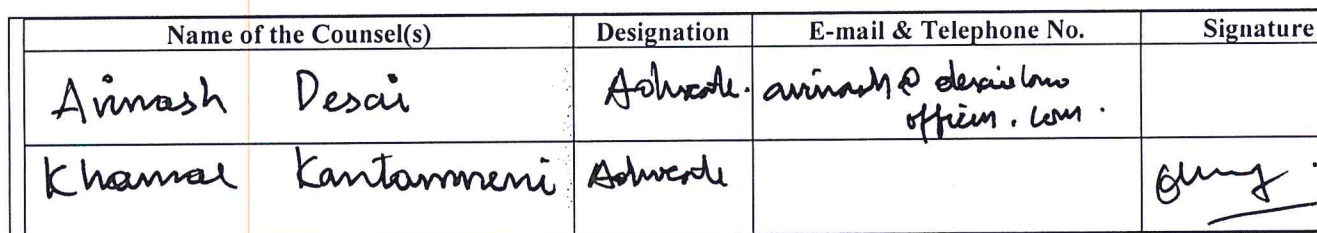 Name of the Counsel(s) Designation E-mail & Telephone No. Signature
Avinash Desai Advocate. avinash@desailaw
offices.com.
Khamar Kantamneni Advocate